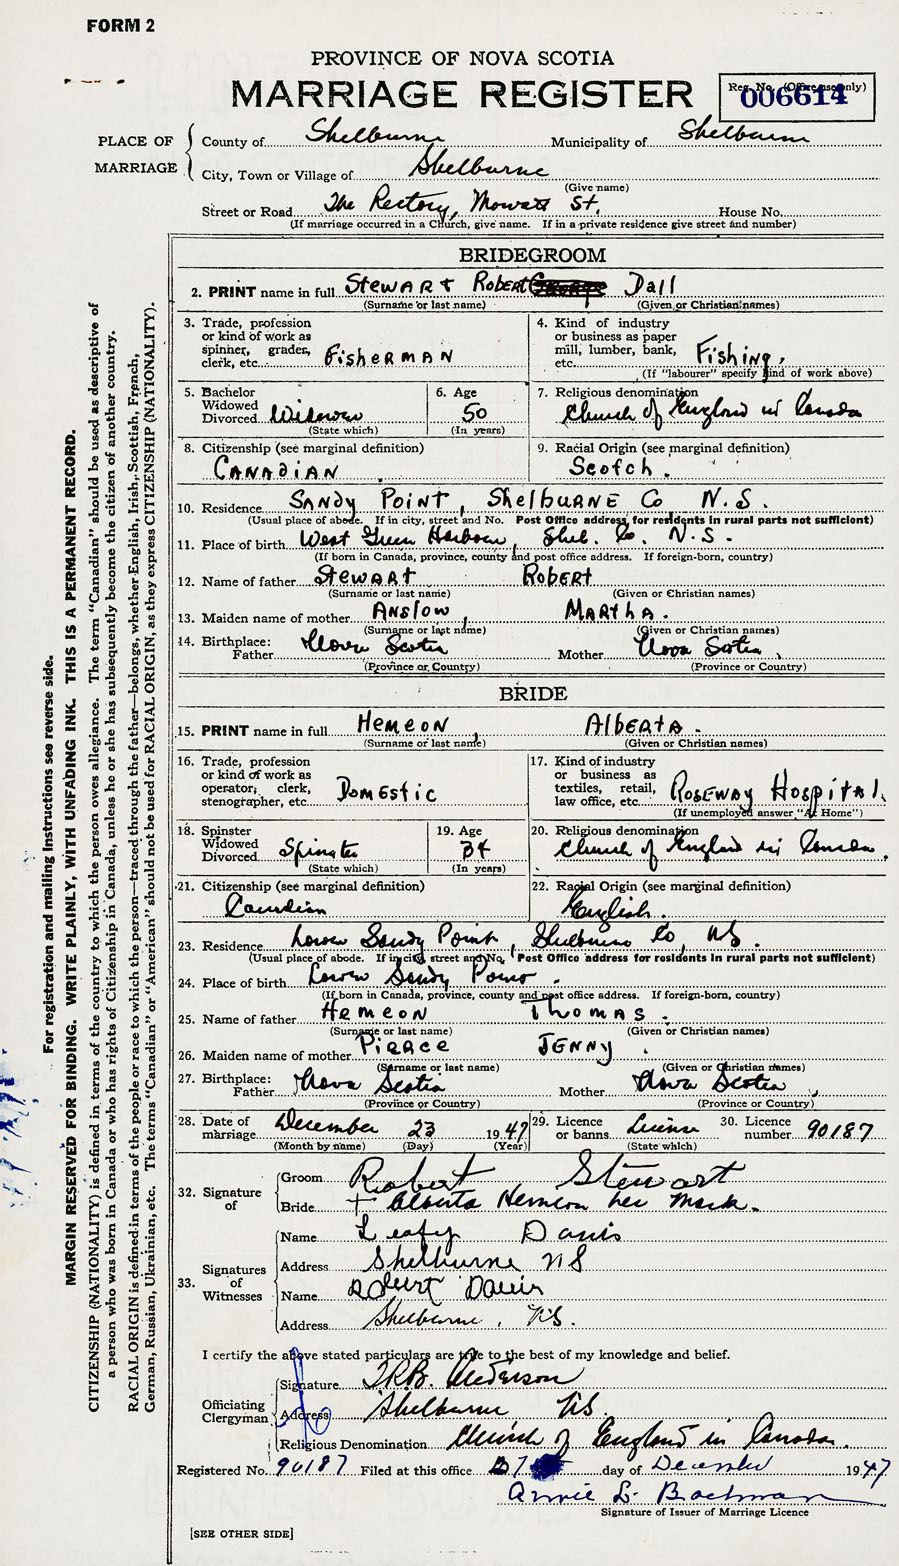 FORM 2
PROVINCE OF NOVA SCOTIA
MARRIAGE REGISTER
Reg. No. (Office use only)
006614
PLACE OF MARRIAGE
County of Shelburne Municipality of Shelburne
City, Town or Village of Shelburne
(Give name)
Street or Road The Rectory, Mowatt St. House No.
(If marriage occurred in a Church, give name. If in a private residence give street and number)
BRIDEGROOM
2. PRINT name in full Stewart Robert Dall
(Surname or last name) (Given or Christian names)
3. Trade, profession or kind of work as spinner, grader, clerk, etc. Fisherman
4. Kind of industry or business as paper mill, lumber, bank, etc. Fishing.
(If "labourer" specify kind of work above)
5. Bachelor Widowed Divorced Widower
(State which)
6. Age 50
(In years)
7. Religious denomination Church of England in Canada
8. Citizenship (see marginal definition) Canadian
9. Racial Origin (see marginal definition) Scotch.
10. Residence Sandy Point, Shelburne Co N.S.
(Usual place of abode. If in city, street and No. Post Office address for residents in rural parts not sufficient)
11. Place of birth West Green Harbour, Shel. Co. N.S.
(If born in Canada, province, county and post office address. If foreign-born, country)
12. Name of father Stewart Robert
(Surname or last name) (Given or Christian names)
13. Maiden name of mother Anslow, Martha.
(Surname or last name) (Given or Christian names)
14. Birthplace: Father Nova Scotia Mother Nova Scotia.
(Province or Country) (Province or Country)
BRIDE
15. PRINT name in full Hemeon, Alberta.
(Surname or last name) (Given or Christian names)
16. Trade, profession or kind of work as operator, clerk, stenographer, etc. Domestic
17. Kind of industry or business as textiles, retail, law office, etc. Roseway Hospital.
(If unemployed answer "At Home")
18. Spinster Widowed Divorced Spinster
(State which)
19. Age 34
(In years)
20. Religious denomination Church of England in Canada.
21. Citizenship (see marginal definition) Canadian
22. Racial Origin (see marginal definition) English.
23. Residence Lower Sandy Point, Shelburne Co, NS.
(Usual place of abode. If in city, street and No. Post Office address for residents in rural parts not sufficient)
24. Place of birth Lower Sandy Point.
(If born in Canada, province, county and post office address. If foreign-born, country)
25. Name of father Hemeon Thomas.
(Surname or last name) (Given or Christian names)
26. Maiden name of mother Pierce Jenny.
(Surname or last name) (Given or Christian names)
27. Birthplace: Father Nova Scotia Mother Nova Scotia,
(Province or Country) (Province or Country)
28. Date of marriage December 23 1947
(Month by name) (Day) (Year)
29. Licence or banns License
(State which)
30. Licence number 90187
32. Signature of
Groom Robert Stewart
Bride + Alberta Hemeon her mark.
33. Signatures of Witnesses
Name Leafy Davis
Address Shelburne NS
Name Robert Davis
Address Shelburne, NS.
I certify the above stated particulars are true to the best of my knowledge and belief.
Officiating Clergyman
Signature T.R.B. Anderson
Address Shelburne NS.
Religious Denomination Church of England in Canada.
Registered No. 90187 Filed at this office 27 day of December 1947
Annie L. Bachman
Signature of Issuer of Marriage Licence
[SEE OTHER SIDE]
For registration and mailing instructions see reverse side.
MARGIN RESERVED FOR BINDING. WRITE PLAINLY, WITH UNFADING INK. THIS IS A PERMANENT RECORD.
CITIZENSHIP (NATIONALITY) is defined in terms of the country to which the person owes allegiance. The term "Canadian" should be used as descriptive of
a person who was born in Canada or who has rights of Citizenship in Canada, unless he or she has subsequently become the citizen of another country.
RACIAL ORIGIN is defined in terms of the people or race to which the person—traced through the father—belongs, whether English, Irish, Scottish, French,
German, Russian, Ukrainian, etc. The terms "Canadian" or "American" should not be used for RACIAL ORIGIN, as they express CITIZENSHIP (NATIONALITY).